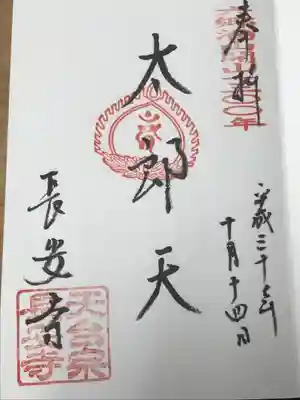 奉拝
平成二十七年
十月十四日
太郎天
長安寺
天台宗
長安寺